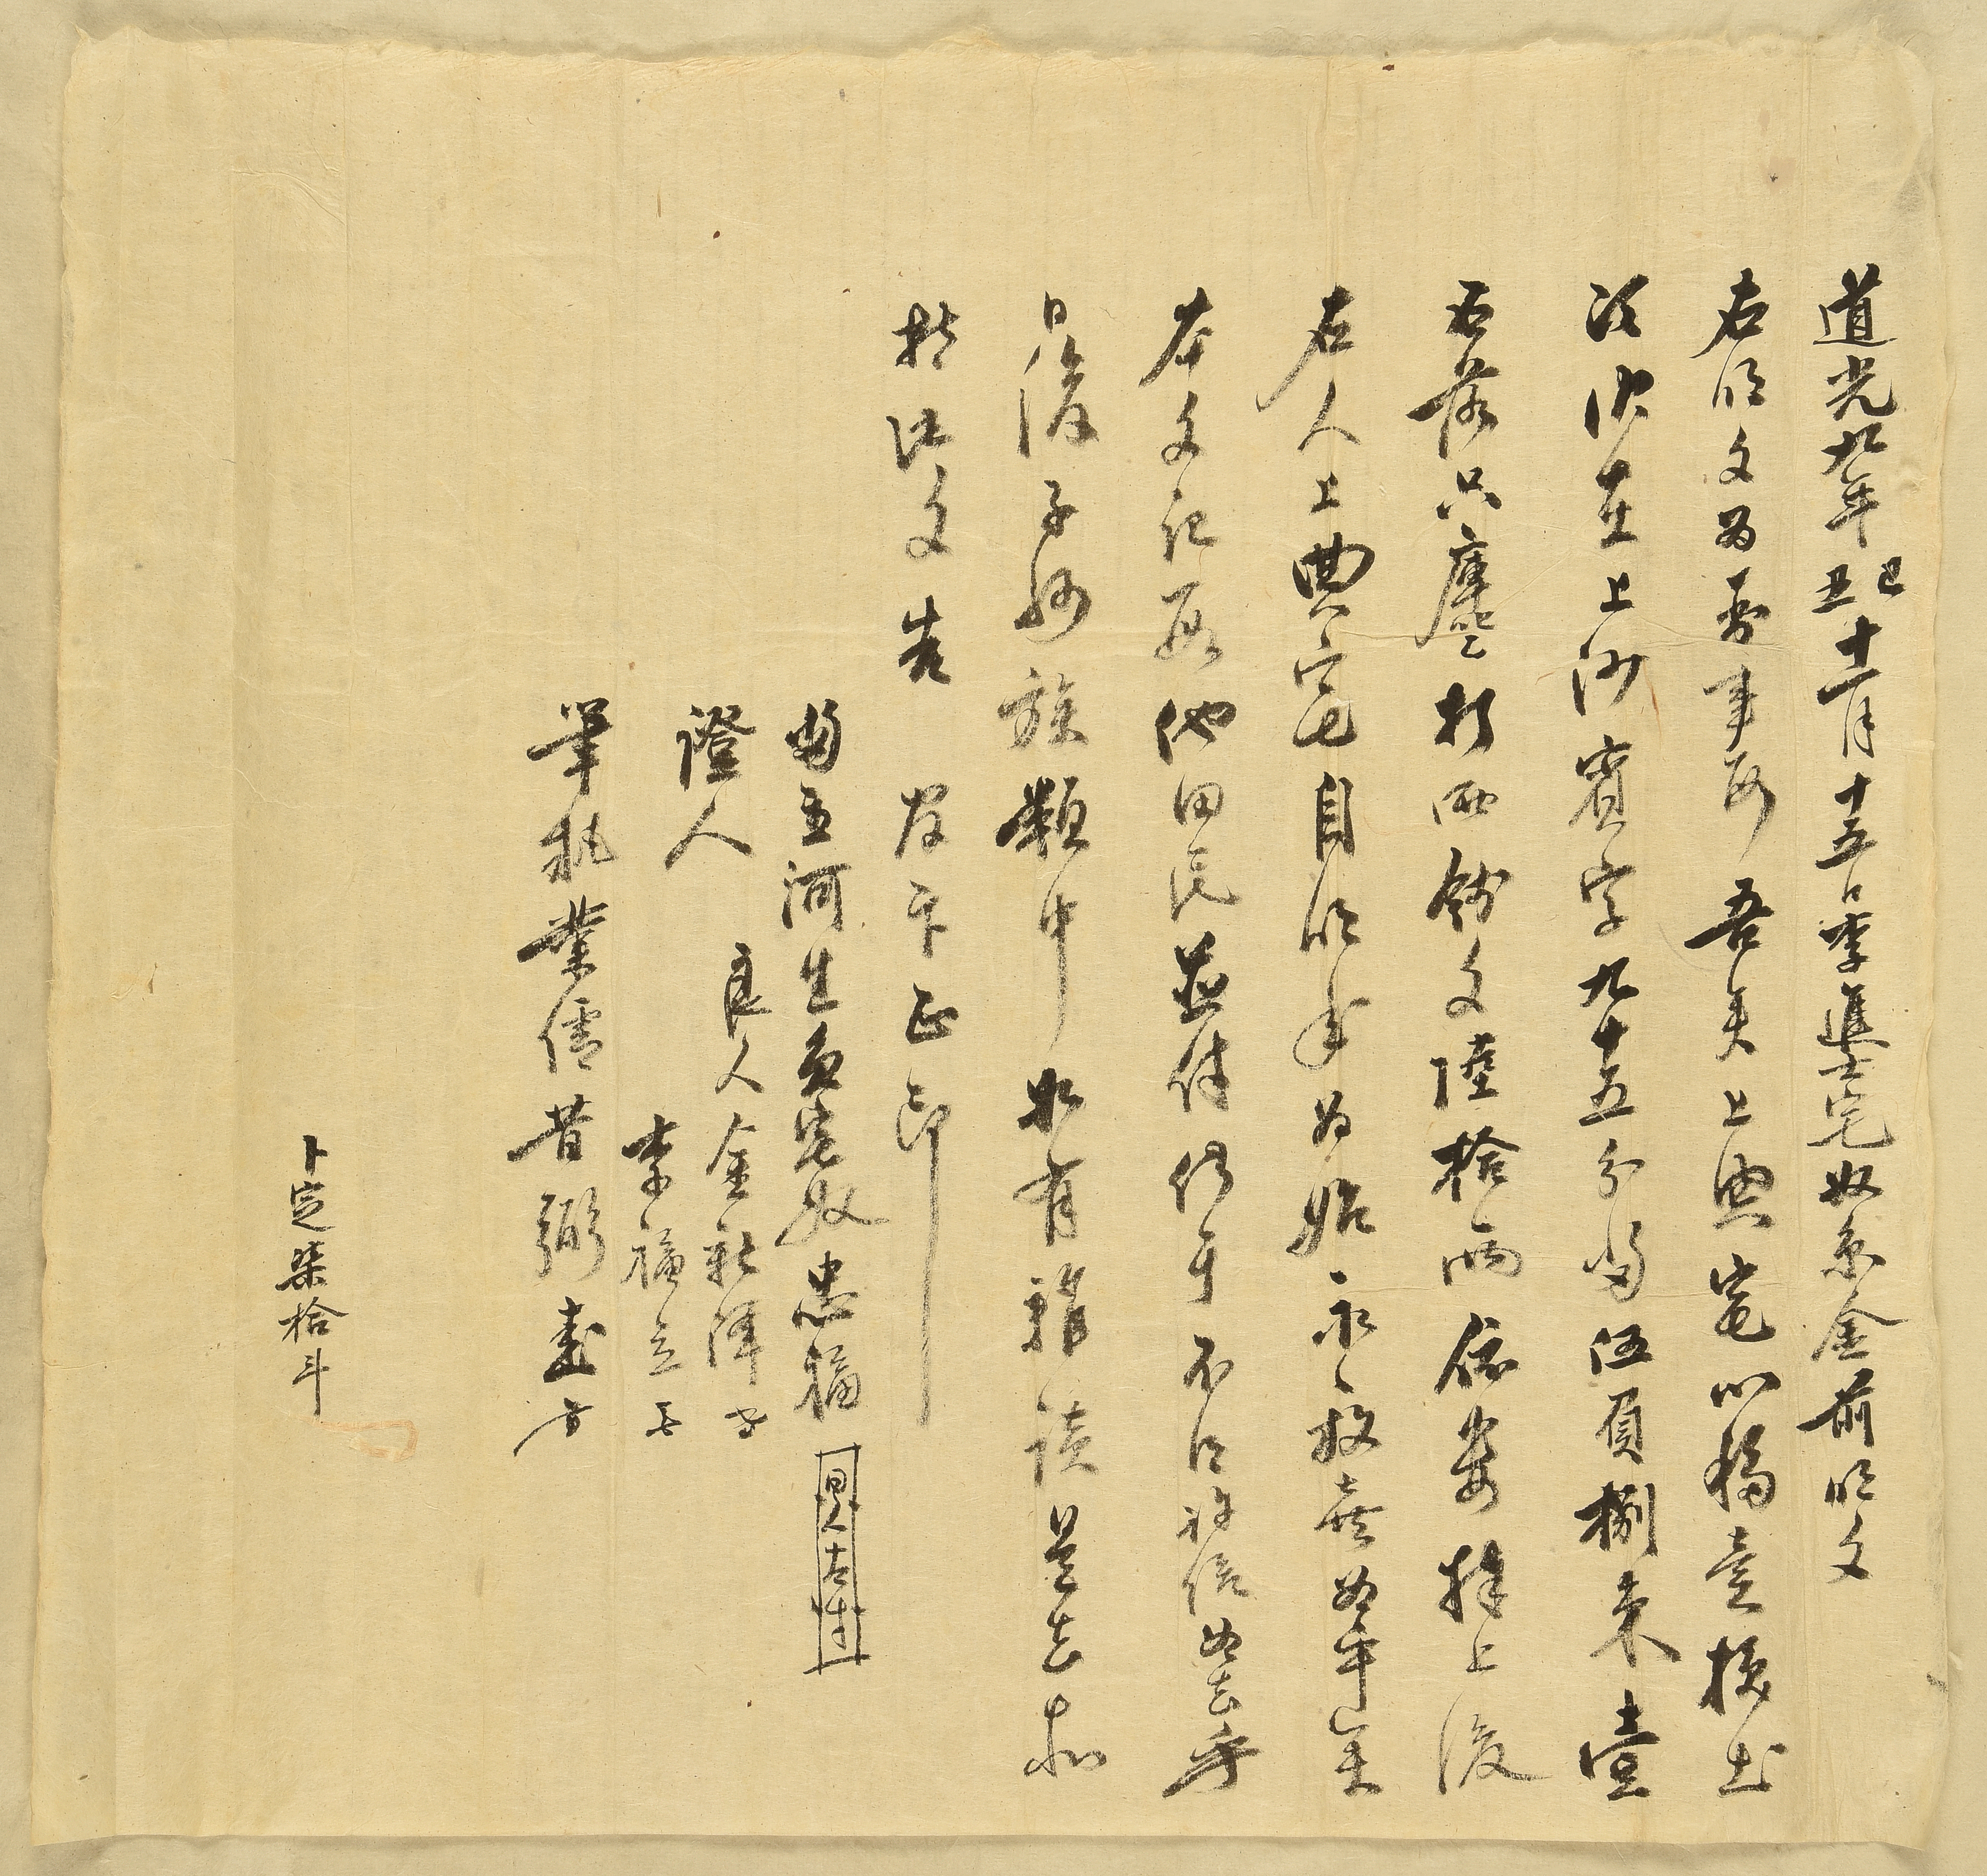 道光九年己丑十一月十五日李進士宅奴京金前明文
右明文爲臥事段吾矣上典宅以移買次
伏在上沙賓字九十五分畓伍負捌束壹
石落只廛乙折丙錢文陸拾兩依數捧上後
右人上典宅自明年爲始永永放賣爲乎矣
本文記段他田民並付仍于不得許給爲去乎
日後子孫族類中如有雜談是去等
持此文告官卞正印
畓主河生員宅奴忠福 左寸
證人 良人金
李福
筆執業儒昔弼
卜定柒拾斗